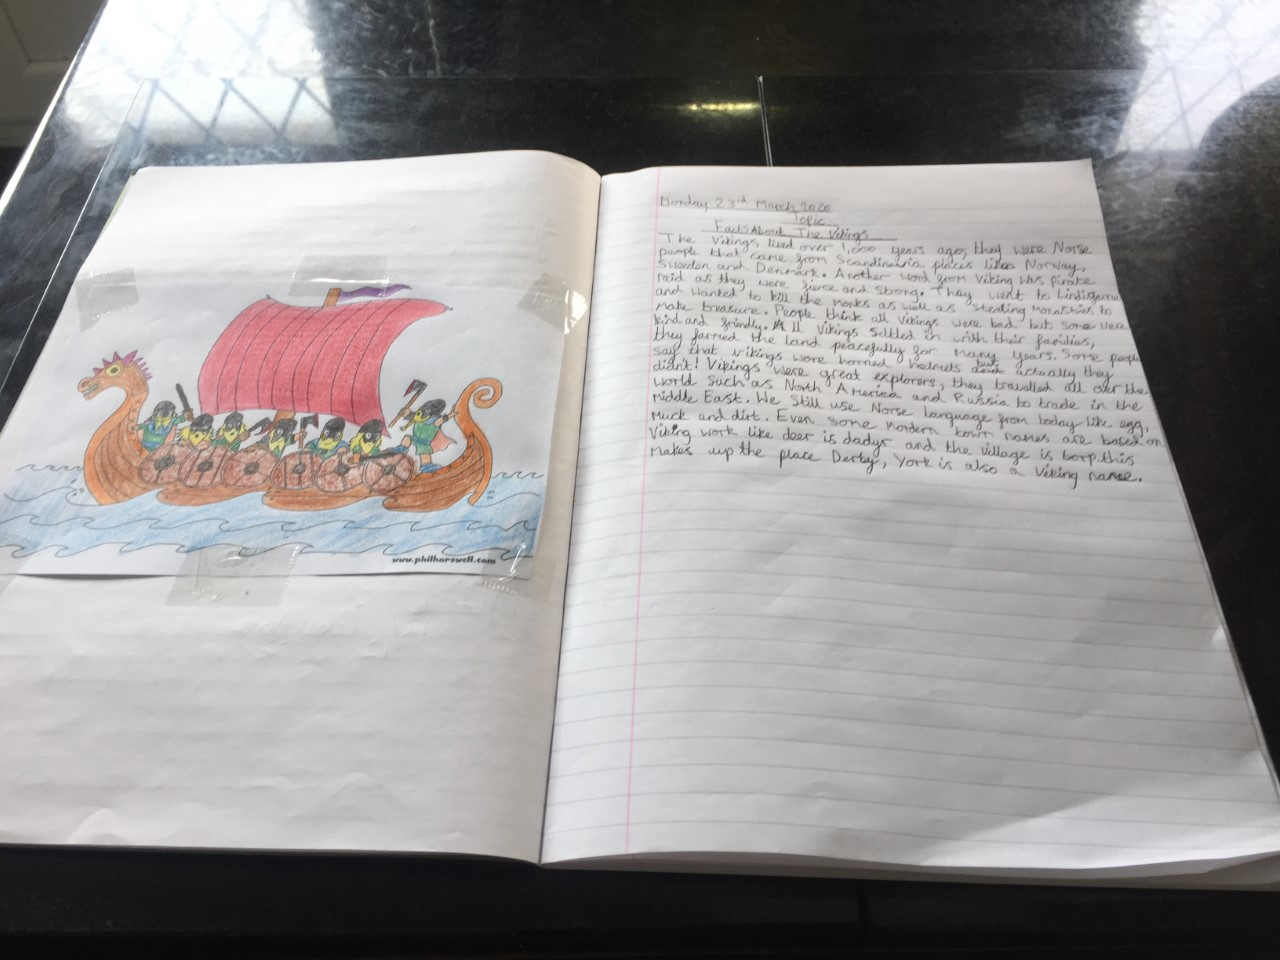 www.philhorswell.com
Monday 23rd March 2020
Topic
Facts About The Vikings
The Vikings lived over 1,000 years ago, they were Norse
people that came from Scandinavia places likes Norway,
Sweden and Denmark. Another word from Viking was pirate
raid as they were fierce and strong. They went to Lindisfarne
and wanted to kill the monks as well as stealing to
make treasure. People think all Vikings were bad but some were
kind and friendly. All Vikings settled in with their families,
they farmed the land peacefully for many years. Some people
say that Vikings wore horned but actually they
didn't! Vikings were great explorers, they travelled all over the
world such as North America and Russia to trade in the
Middle East. We still use Norse language from today like egg,
Muck and dirt. Even some modern town names are based on
Viking work like deer is and the village is this
makes up the place Derby, York is also a Viking name.